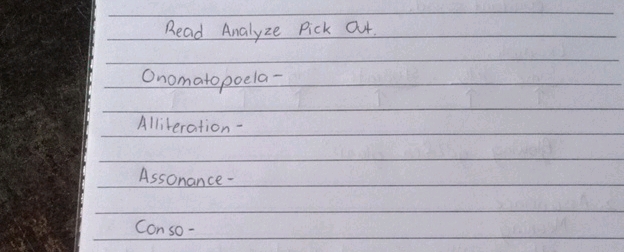 Read Analyze Pick Out.
Onomatopoela -
Alliteration -
Assonance -
Conso -